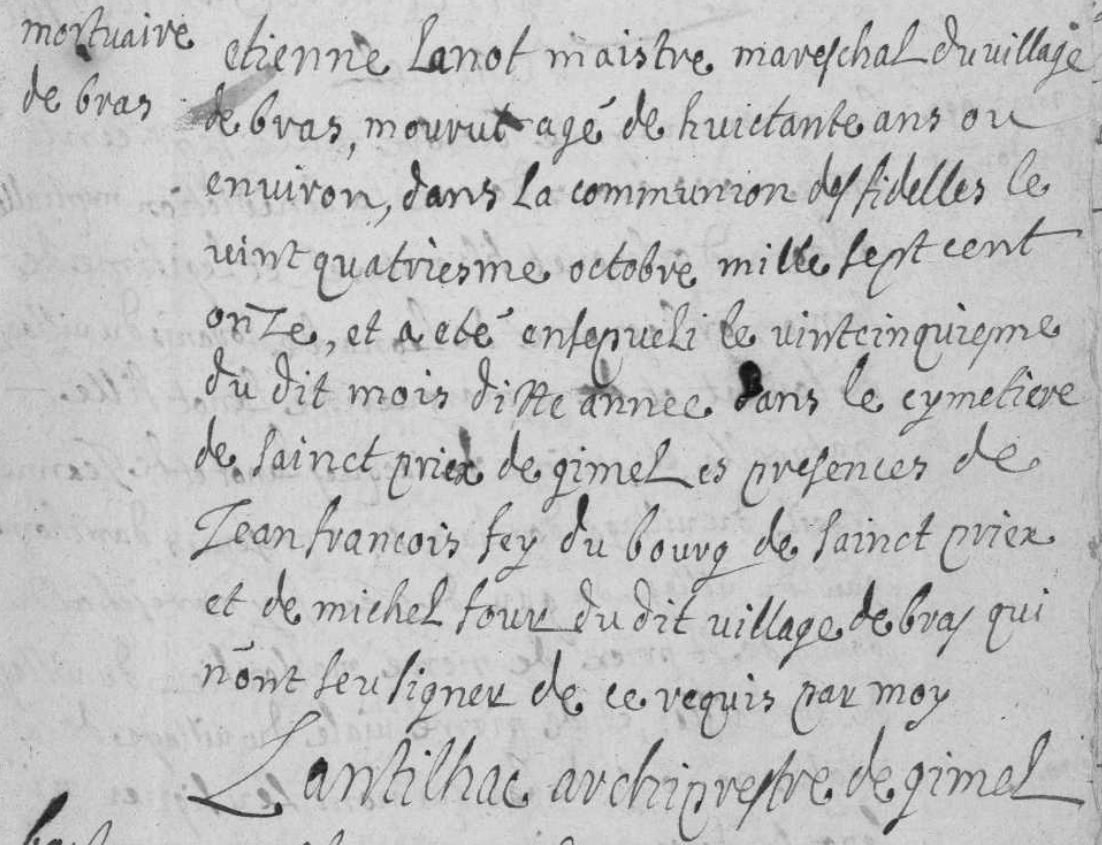 mortuaire
de bras
etienne Lanot maistre mareschal du village
de bras, mourut agé de huictante ans ou
environ, dans la communion des fidelles le
vint quatriesme octobre mille sept cent
onze, et a eté ensepueli le vintcinquiesme
du dit mois ditte annee dans le cymetiere
de sainct priex de gimel es presences de
Jean francois fey du bourg de sainct priex
et de michel four du dit village de bras qui
n'ont seu signer de ce requis par moy
Lantilhac archiprestre de gimel